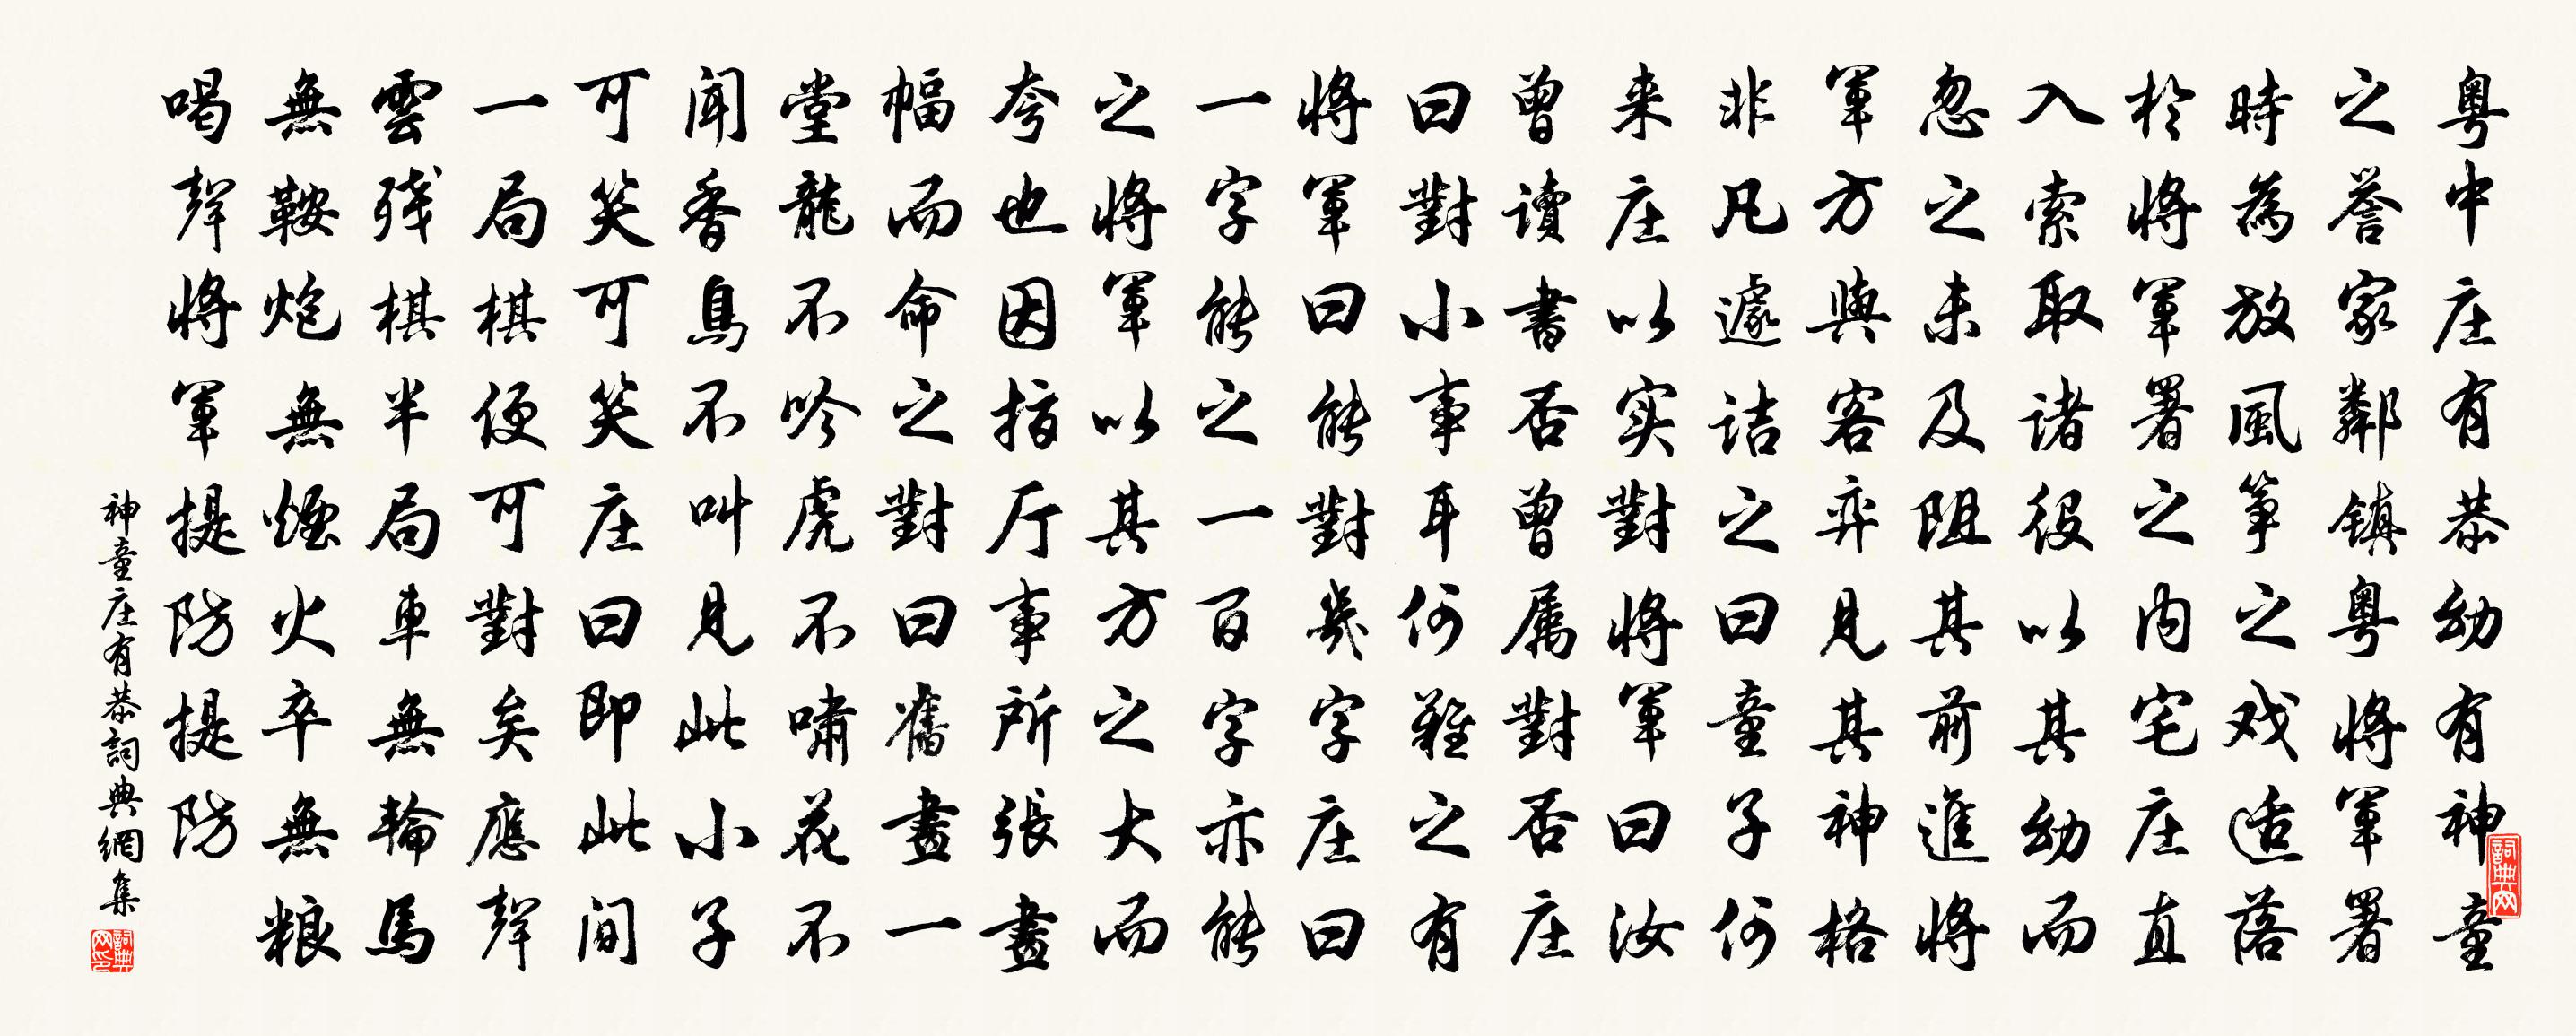 粤中庄有恭幼有神童
之誉家鄰镇粤將軍署
時為放風筝之戏适落
於將軍署之内宅庄直
入索取诸役以其幼而
忽之未及阻其前進將
軍方與客弈見其神格
非凡遽诘之曰童子何
来庄以实對將軍曰汝
曾讀書否曾属對否庄
曰對小事耳何難之有
將軍曰能對幾字庄曰
一字能之一百字亦能
之將軍以其方之大而
夸也因指厅事所張畫
幅而命之對曰舊畫一
堂龍不吟虎不啸花不
闻香鳥不叫見此小子
可笑可笑庄曰即此间
一局棋便可對矣應聲
雲残棋半局車無輪馬
無鞍炮無煙火卒無粮
喝聲將軍提防提防
神童庄有恭詞典網集
詞典网
詞典网印